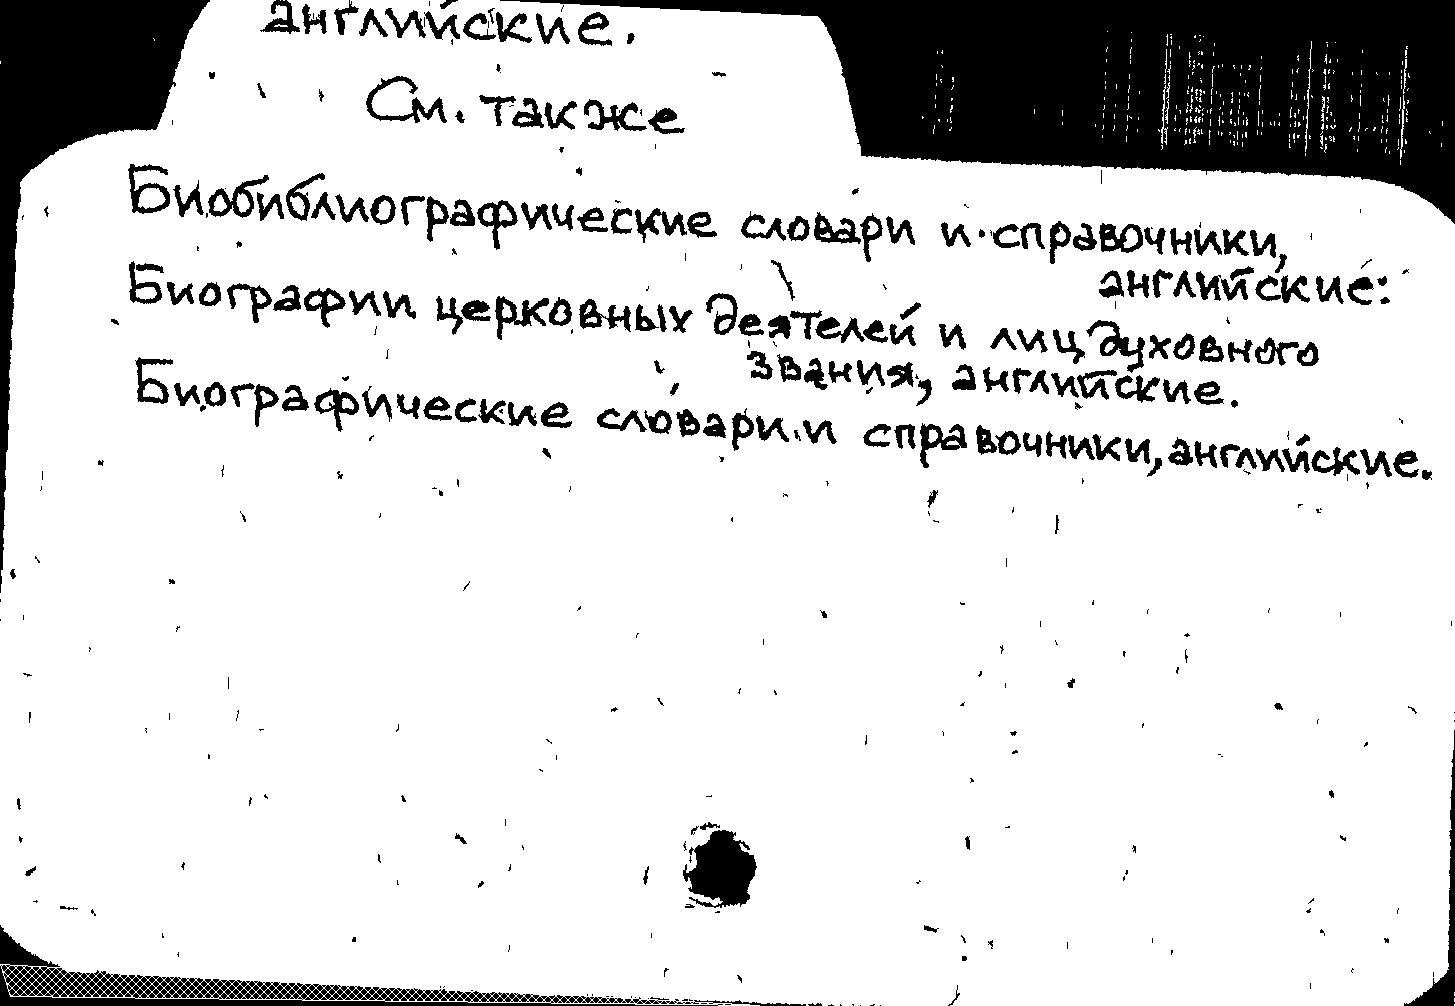 английские.
См. также
Биобиблиографические словари и справочники,
английские.
Биографии церковных деятелей и лиц духовного
звания, английские.
Биографические словари и справочники, английские.